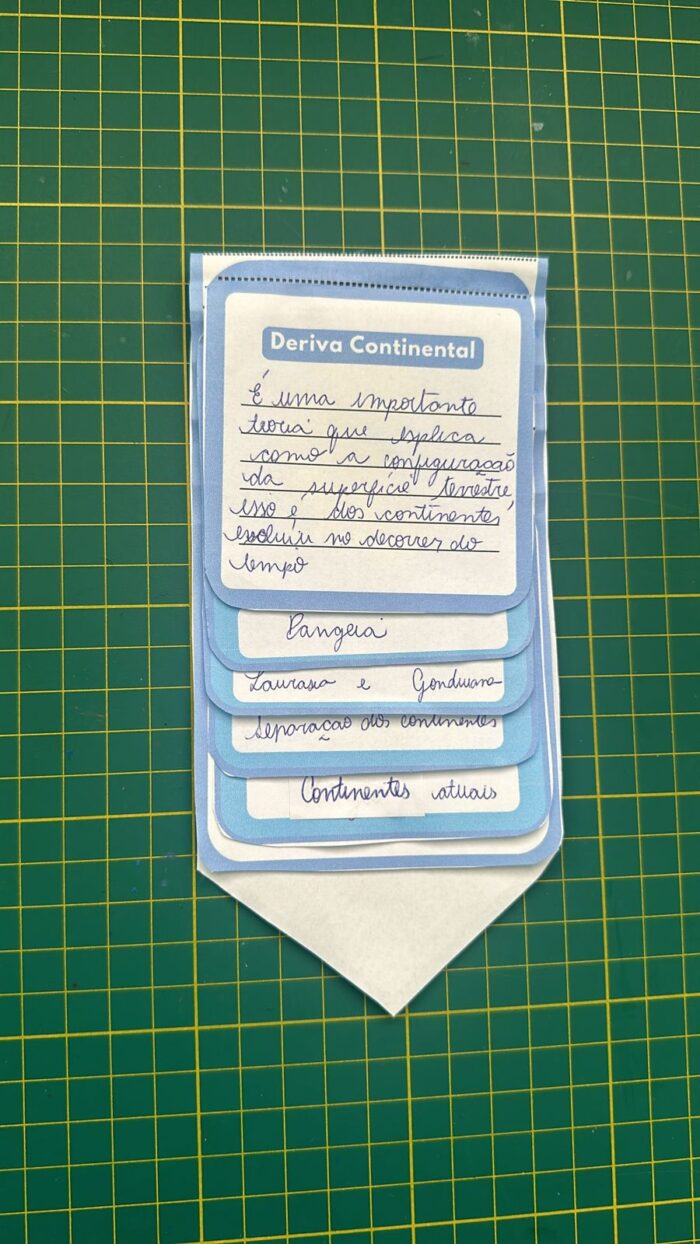 Deriva Continental
É uma importante
teoria que explica
como a configuração
da superfície terrestre,
isso é dos continentes,
evoluiu no decorrer do
tempo
Pangeia
Laurasia e Gondwana
Separação dos continentes
Continentes atuais